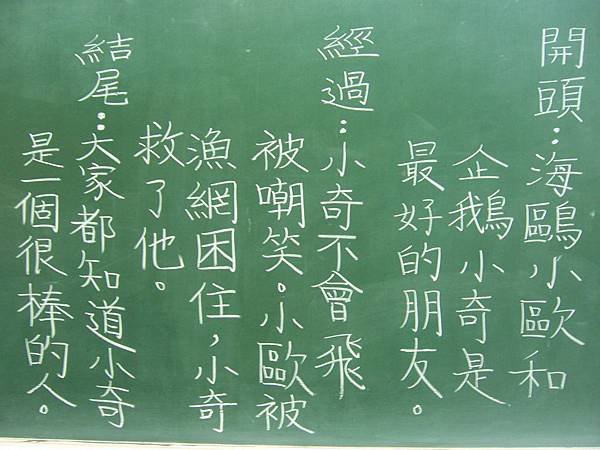 開頭：海鷗小歐和
企鵝小奇是
最好的朋友。
經過：小奇不會飛
被嘲笑。小歐被
漁網困住，小奇
救了他。
結尾：大家都知道小奇
是一個很棒的人。